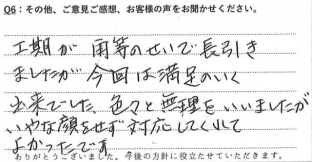 Q6：その他、ご意見ご感想、お客様の声をお聞かせください。
工期が 雨等のせいで長引き
ましたが 今回は満足のいく
出来でした、色々と無理をいいましたが
いやな顔をせず 対応してくれて
よかったです
ありがとうございました。今後の方針に役立たせていただきます。